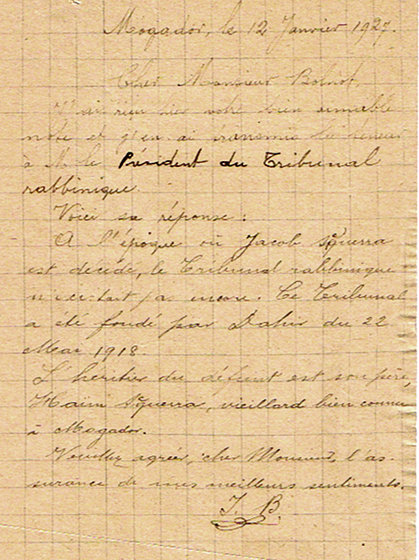 Mogador, le 12 Janvier 1927.
Cher Monsieur
J'ai reçu hier votre bien aimable
note et j'en ai transmis la teneur
à M. le Président du Tribunal
rabbinique.
Voici sa réponse :
A l'époque où Jacob
est décédé, le Tribunal rabbinique
n'existait pas encore. Ce Tribunal
a été fondé par Dahir du 22
Mai 1918.
L'heritier du défunt est son père,
Haïm, vieillard bien connu
à Mogador.
Veuillez agréer, cher Monsieur, l'as-
surance de mes meilleurs sentiments.
J. B.